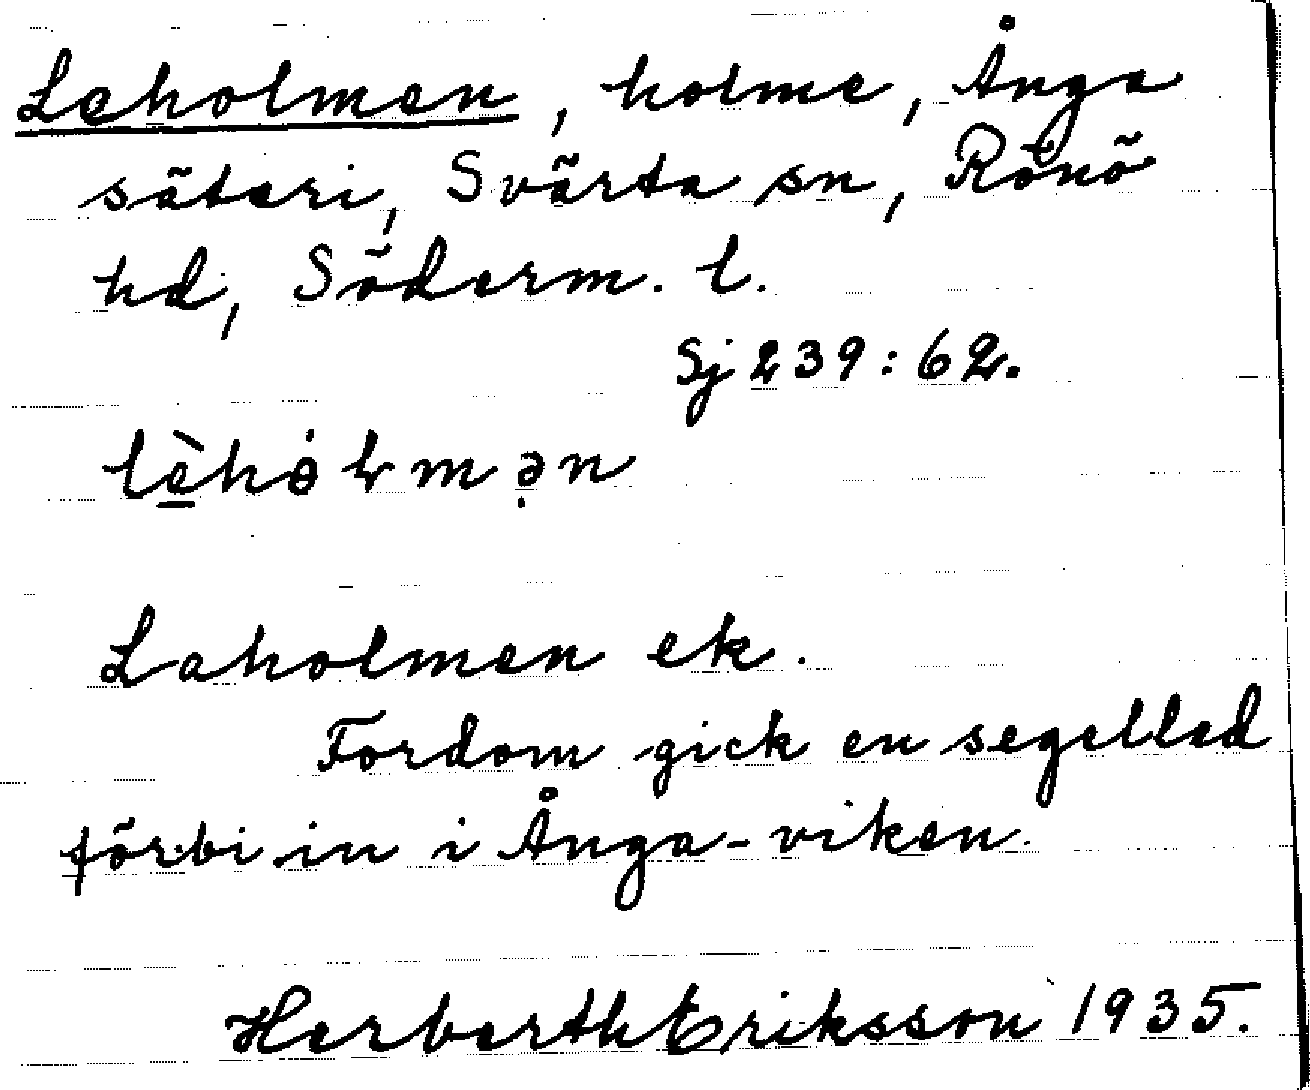 Leholmen, holme, Ånga
säteri, Svärta sn, Rönö
hd, Söderm. l.
Sj 239:62.
lè̱hȯɬmə̣n
Laholmen ek.
Fordom gick en segelled
förbi in i Ånga-viken.
Herbarth Eriksson 1935.